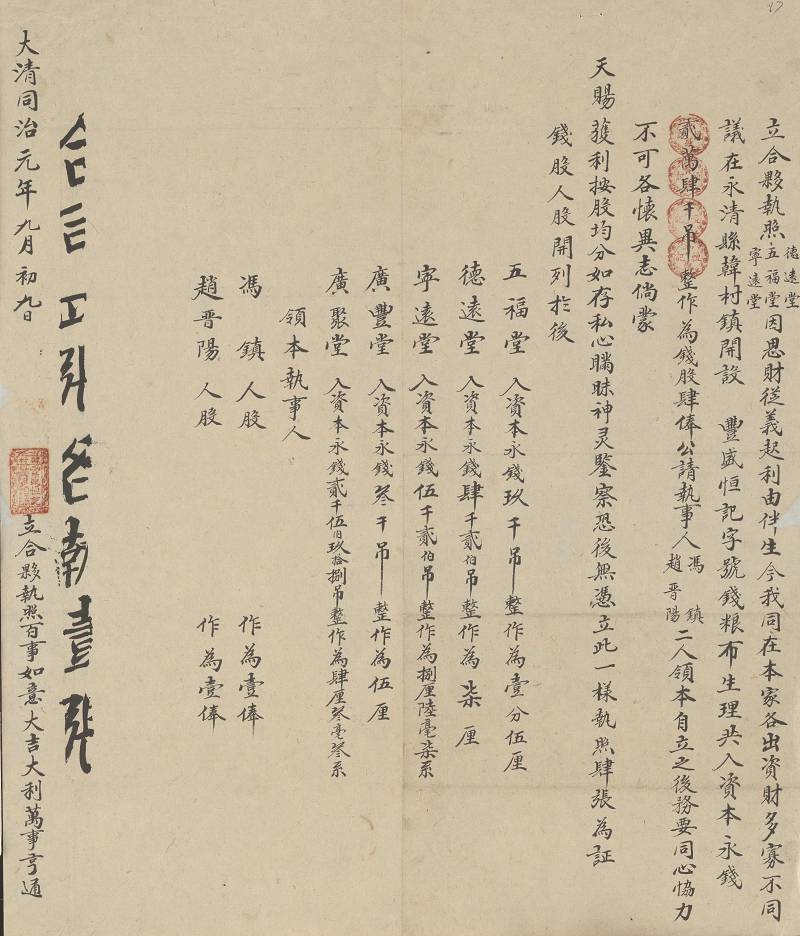 立合夥執照德遠堂五福堂寧遠堂因思財從義起利由伴生今我同在本家各出資財多寡不同
議在永清縣韓村鎮開設 豐盛恒記字號錢粮布生理共入資本永錢
貳萬肆千吊整作為錢股肆俸公請執事人馮鎮趙晋陽二人領本自立之後務要同心恊力
不可各懷異志倘蒙
天賜獲利按股均分如存私心瞞昧神灵鑒察恐後無憑立此一樣執照肆張為証
錢股人股開列於後
五福堂 入資本永錢玖千吊整作為壹分伍厘
德遠堂 入資本永錢肆千貳伯吊整作為柒厘
寧遠堂 入資本永錢伍千貳伯吊整作為捌厘陸毫柒系
廣豐堂 入資本永錢叁千吊整作為伍厘
廣聚堂 入資本永錢貳千伍伯玖拾捌吊整作為肆厘叁毫叁系
領本執事人
馮鎮 人股 作為壹俸
趙晋陽 人股 作為壹俸
大清同治元年九月初九日 立合夥執照百事如意大吉大利萬事亨通